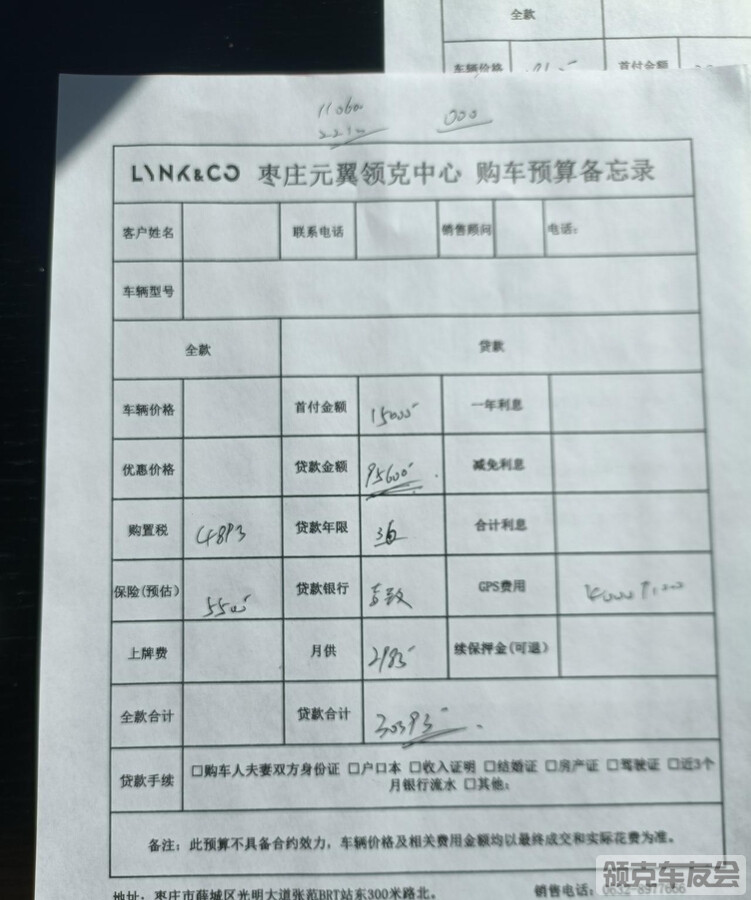 全款
车辆价格 首付金额
110600
000
LYNK&CO 枣庄元翼领克中心 购车预算备忘录
客户姓名 联系电话 销售顾问 电话:
车辆型号
全款 贷款
车辆价格 首付金额 15000 一年利息
优惠价格 贷款金额 95600 减免利息
购置税 4893 贷款年限 合计利息
保险(预估) 5500 贷款银行 GPS费用 4000
上牌费 月供 续保押金(可退)
全款合计 贷款合计 30393
贷款手续 □购车人夫妻双方身份证 □户口本 □收入证明 □结婚证 □房产证 □驾驶证 □近3个
月银行流水 □其他:
备注: 此预算不具备合约效力, 车辆价格及相关费用金额均以最终成交和实际花费为准。
地址: 枣庄市薛城区光明大道张范BRT站东300米路北。 销售电话:
领克车友会